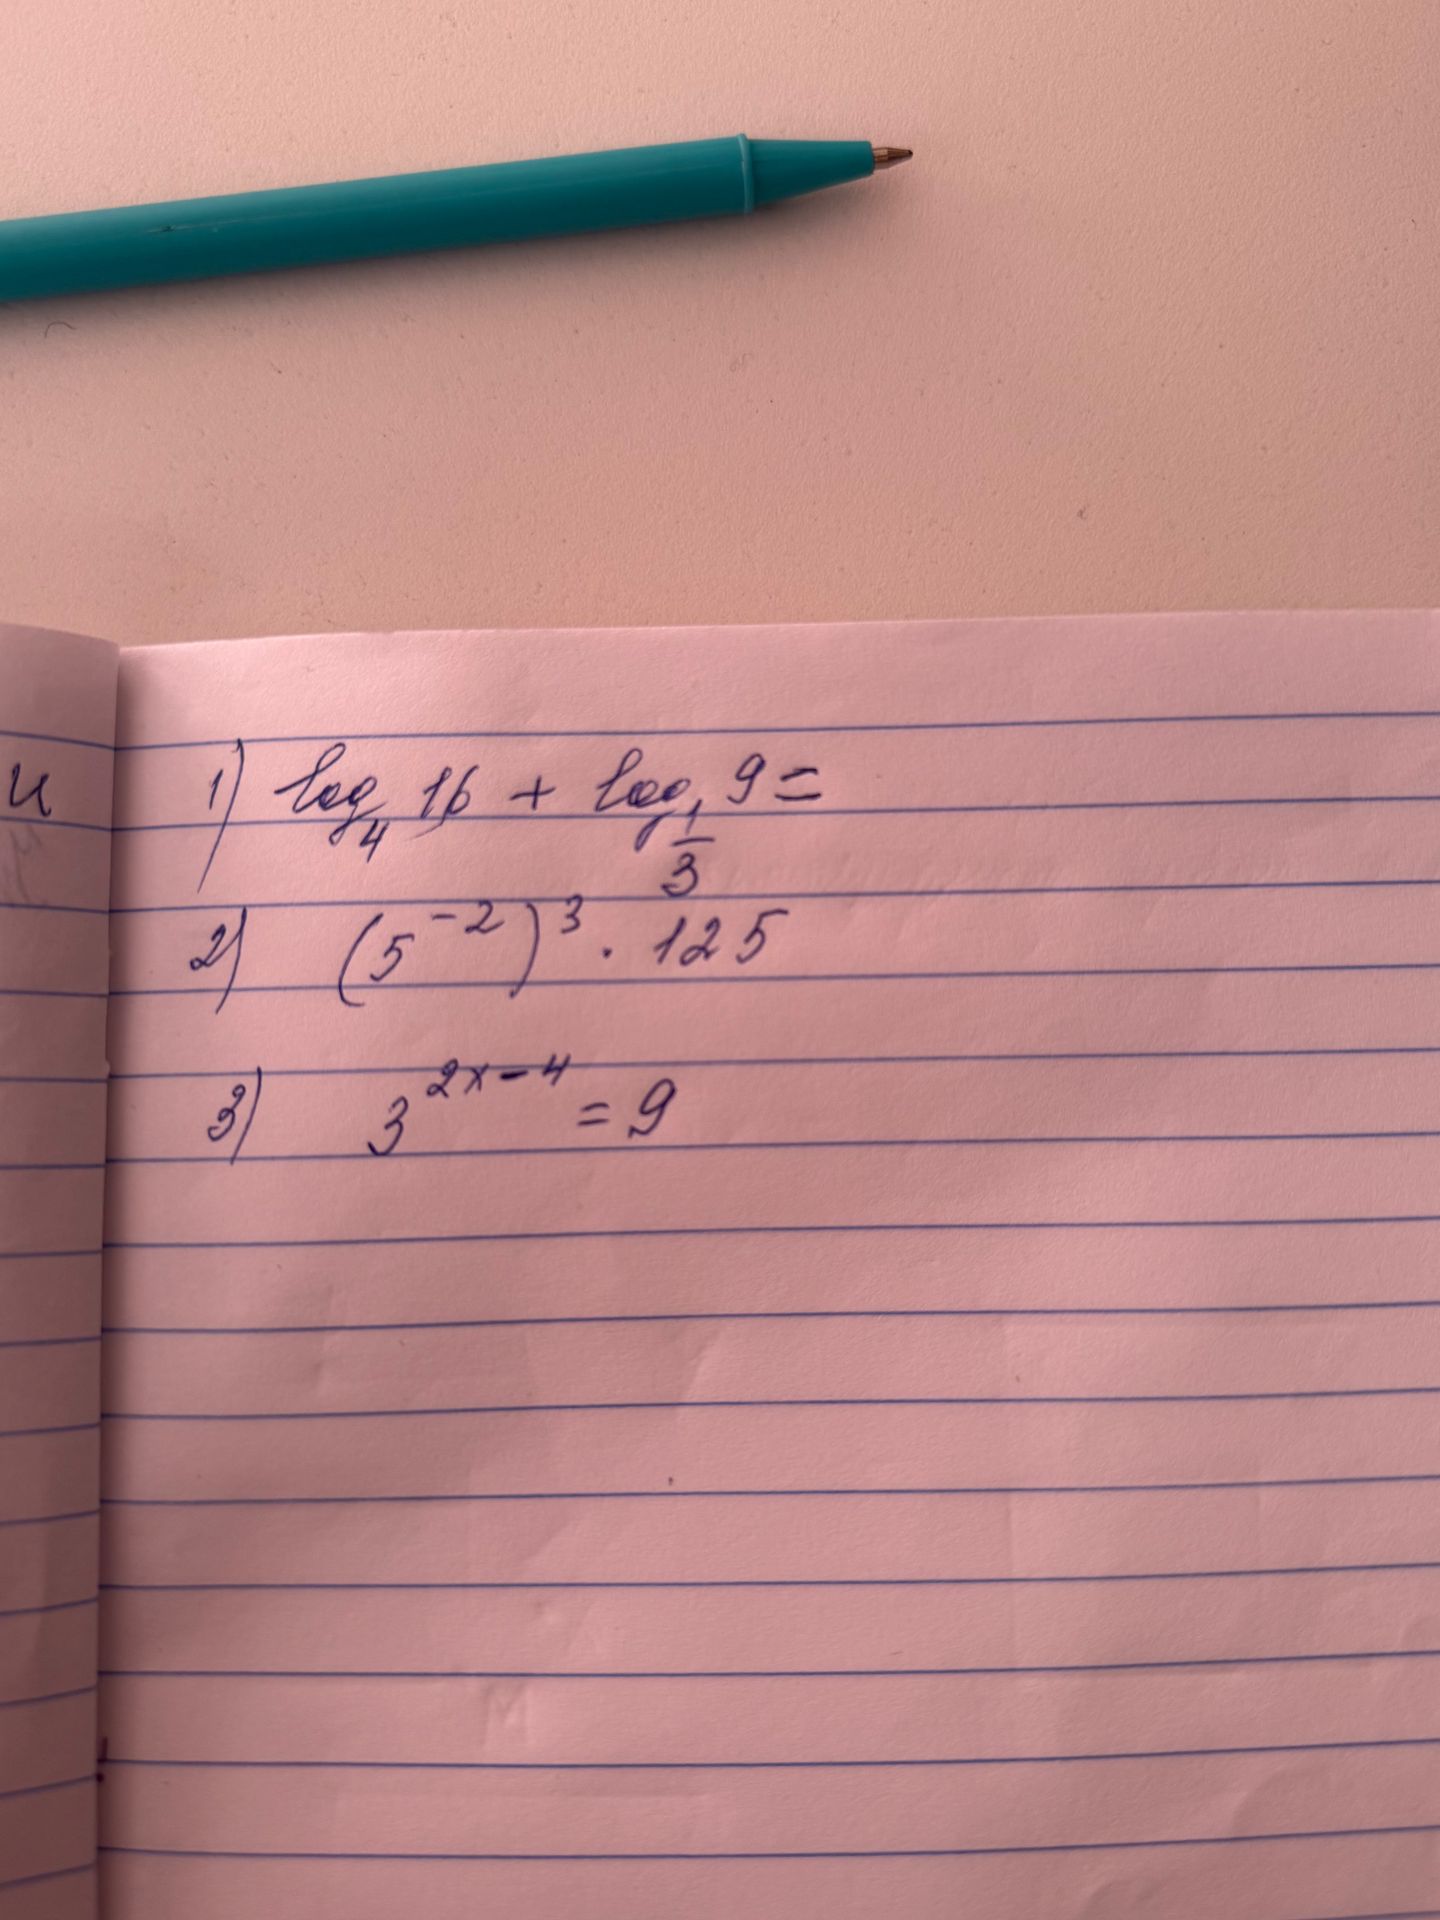 и
1) log₄ 16 + log_{1/3} 9 =
2) (5⁻²)³ · 125
3) 3^{2x-4} = 9